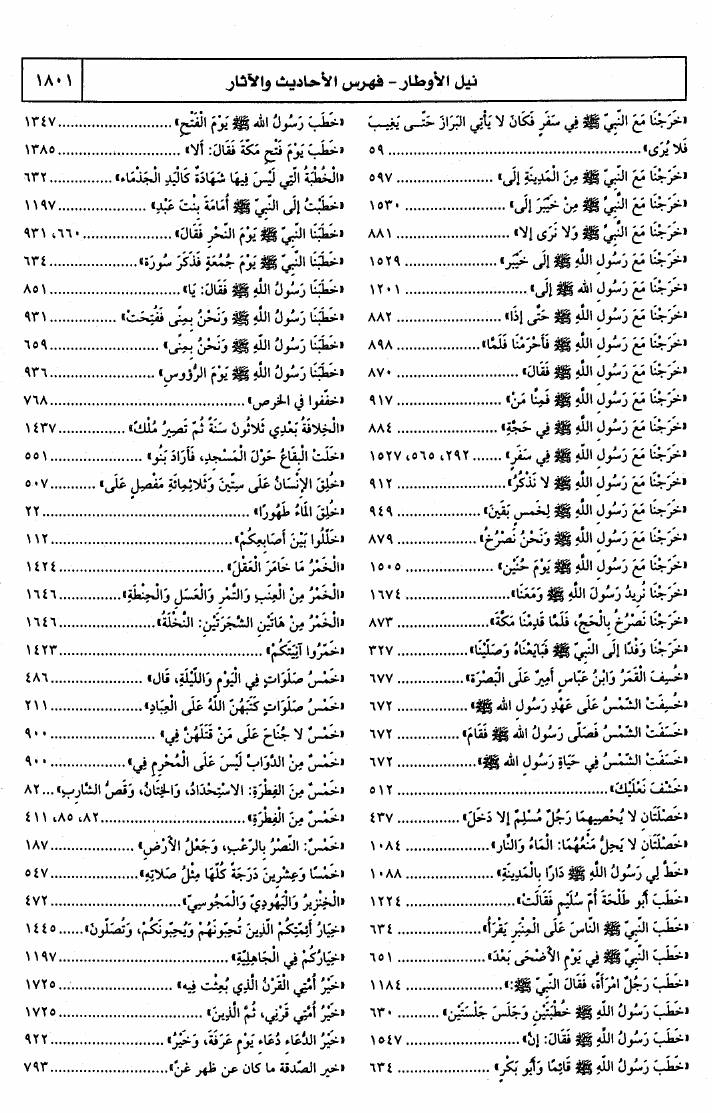 نيل الأوطار - فهرس الأحاديث والآثار ١٨٠١
«خَرَجْنَا مَعَ النَّبِيِّ ﷺ فِي سَفَرٍ فَكَانَ لَا يَأْتِي البَرَازَ حَتَّى يَغِيبَ
فَلَا يُرَى» ٥٩
«خَرَجْنَا مَعَ النَّبِيِّ ﷺ مِنَ الْمَدِينَةِ إِلَى» ٥٩٧
«خَرَجْنَا مَعَ النَّبِيِّ ﷺ مِنْ خَيْبَرَ إِلَى» ١٥٣٠
«خَرَجْنَا مَعَ النَّبِيِّ ﷺ وَلَا نَرَى إِلا» ٨٨١
«خَرَجْنَا مَعَ رَسُولِ اللَّهِ ﷺ إِلَى خَيْبَر» ١٥٢٩
«خَرَجْنَا مَعَ رَسُولِ الله ﷺ إِلَى» ١٢٠١
«خَرَجْنَا مَعَ رَسُولِ اللَّهِ ﷺ حَتَّى إِذَا» ٨٨٢
«خَرَجْنَا مَعَ رَسُولِ اللَّهِ ﷺ فَأَحْرَمْنَا فَلَمَّا» ٨٩٨
«خَرَجْنَا مَعَ رَسُولِ اللَّهِ ﷺ فَقَالَ» ٨٧٠
«خَرَجْنَا مَعَ رَسُولِ اللَّهِ ﷺ فَمِنَّا مَنْ» ٩١٧
«خَرَجْنَا مَعَ رَسُولِ اللَّهِ ﷺ فِي حَجَّةِ» ٨٨٤
«خَرَجْنَا مَعَ رَسُولِ اللَّهِ ﷺ فِي سَفَرٍ» ٢٩٢، ٥٦٥، ١٥٢٧
«خَرَجْنَا مَعَ رَسُولِ اللَّهِ ﷺ لَا نَذْكُرُ» ٩١٢
«خَرَجْنَا مَعَ رَسُولِ اللَّهِ ﷺ لِخَمسٍ بَقِينَ» ٩٤٩
«خَرَجْنَا مَعَ رَسُولِ اللَّهِ ﷺ وَنَحْنُ نَصْرُخُ» ٨٧٩
«خَرَجْنَا مَعَ رَسُولِ اللَّهِ ﷺ يَوْمَ حُنَيْنِ» ١٥٠٥
«خَرَجْنَا نُرِيدُ رَسُولَ اللَّهِ ﷺ وَمَعَنَا» ١٦٧٤
«خَرَجْنَا نَصْرُخُ بِالْحَجِّ، فَلَمَّا قَدِمْنَا مَكَّةَ» ٨٧٣
«خَرَجْنَا وَفْدًا إِلَى النَّبِيِّ ﷺ فَبَايَعْنَاهُ وَصَلَّيْنَا» ٣٢٧
«خُسِفَ الْقَمَرُ وَابْنُ عَبَّاسٍ أَمِيرٌ عَلَى الْبَصْرَةِ» ٦٧٧
«خُسِفَتْ الشَّمْسُ عَلَى عَهْدِ رَسُولِ اللهِ ﷺ» ٦٧٢
«خَسَفَت الشَّمْسُ فَصَلَّى رَسُولُ اللهِ ﷺ فَقَامَ» ٦٧٢
«خَسَفَتِ الشَّمْسُ فِي حَيَاةِ رَسُولِ الله ﷺ» ٦٧٢
«خَشْفَ نَعْلَيْكَ» ٥١٢
«خَصْلَتَانِ لَا يُحْصِيهِمَا رَجُلٌ مُسْلِمٌ إِلا دَخَلَ» ٤٣٧
«خَصْلَتَانِ لَا يَحِلُّ مَنْعُهُمَا: الْمَاءُ وَالنَّار» ١٠٨٤
«خَطَّ لِي رَسُولُ اللَّهِ ﷺ دَارًا بِالْمَدِينَةِ» ١٠٨٨
«خَطَبَ أَبُو طَلْحَةَ أُمَّ سُلَيْمٍ فَقَالَتْ» ١٢٢٤
«خَطَبَ النَّبِيِّ ﷺ النَّاسَ عَلَى الْمِنْبَرِ يَقْرَأُ» ٦٣٤
«خَطَبَ النَّبِيِّ ﷺ فِي يَوْمِ الْأَضْحَى بَعْدَ» ٦٥١
«خَطَبَ رَجُلٌ امْرَأَةً، فَقَالَ النَّبِيِّ ﷺ:» ١١٨٤
«خَطَبَ رَسُولُ اللَّهِ ﷺ خُطْبَتَيْنِ وَجَلَسَ جَلْسَتَيْنِ» ٦٣٠
«خَطَبَ رَسُولُ اللَّهِ ﷺ فَقَالَ: إِنَّ» ١٥٤٧
«خَطَبَ رَسُولُ اللَّهِ ﷺ قَائِمًا وَأَبُو بَكْرٍ» ٦٣٤
«خَطَبَ رَسُولُ الله ﷺ يَوْمَ الْفَتْحِ» ١٣٤٧
«خَطَبَ يَوْمَ فَتْحِ مَكَّةَ فَقَالَ: أَلَا» ١٣٨٥
«الْخُطْبَةُ الَّتِي لَيْسَ فِيهَا شَهَادَةٌ كَالْيَدِ الْجَذْمَاء» ٦٣٢
«خَطَبْتُ إِلَى النَّبِيِّ ﷺ أُمَامَةَ بِنْتَ عَبْدِ» ١١٩٧
«خَطَبَنَا النَّبِيِّ ﷺ يَوْمَ النَّحْرِ فَقَالَ» ٦٦٠، ٩٣١
«خَطَبَنَا النَّبِيِّ ﷺ يَوْمَ جُمُعَةٍ فَذَكَرَ سُورَة» ٦٣٤
«خَطَبَنَا رَسُولُ اللَّهِ ﷺ فَقَالَ: يَا» ٨٥١
«خَطَبَنَا رَسُولُ اللَّهِ ﷺ وَنَحْنُ بِمِنًى فَفُتِحَتْ» ٩٣١
«خَطَبَنَا رَسُولُ اللَّهِ ﷺ وَنَحْنُ بِمِنًى» ٦٥٩
«خَطَبَنَا رَسُولُ اللَّهِ ﷺ يَوْمَ الرُّؤُوسِ» ٩٣٦
«خفّفوا في الخرص» ٧٦٨
«الْخِلَافَةُ بَعْدِي ثَلَاثُونَ سَنَةً ثُمَّ تَصِيرُ مُلْكً» ١٤٣٧
«خَلَتْ الْبِقَاعُ حَوْلَ الْمَسْجِدِ، فَأَرَادَ بَنُو» ٥٥١
«خُلِقَ الْإِنْسَانُ عَلَى سِتِّينَ وَثَلَاثِمِائَةِ مَفْصِلٍ عَلَى» ٥٠٧
«خُلِقَ الْمَاءُ طَهُورًا» ٢٢
«خَلِّلُوا بَيْنَ أَصَابِعِكُمْ» ١١٢
«الْخَمْرُ مَا خَامَرَ الْعَقْلَ» ١٤٢٤
«الْخَمْرُ مِنْ الْعِنَبِ وَالتَّمْرِ وَالْعَسَلِ وَالْحِنْطَةِ» ١٦٤٦
«الْخَمْرُ مِنْ هَاتَيْنِ الشَّجَرَتَيْنِ: النَّخْلَةُ» ١٦٤٦
«خَمِّرُوا آنِيَتَكُمْ» ١٤٢٣
«خَمْسُ صَلَوَاتٍ فِي الْيَوْمِ وَاللَّيْلَةِ، قَال» ٤٨٦
«خَمْسُ صَلَوَاتٍ كَتَبَهُنَّ اللَّهُ عَلَى الْعِبَادِ» ٢١١
«خَمْسٌ لَا جُنَاحَ عَلَى مَنْ قَتَلَهُنَّ فِي» ٩٠٠
«خَمْسٌ مِنْ الدَّوَابِّ لَيْسَ عَلَى الْمُحْرِمِ فِي» ٩٠٠
«خَمْسٌ مِنَ الفِطْرَةِ: الاسْتِحْدَادُ، وَالخِتَانُ، وَقَصُّ الشَّارِبِ» ٨٢
«خَمْسٌ مِنَ الفِطْرَةِ» ٨٢، ٨٥، ٤١١
«خَمْسٌ: النَّصْرُ بِالرَّعْبِ، وَجَعْلُ الْأَرْضِ» ١٨٧
«خَمْسًا وَعِشْرِينَ دَرَجَةً كُلُّهَا مِثْلُ صَلَاتِهِ» ٥٤٧
«الْخِنْزِيرُ وَالْيَهُودِيّ وَالْمَجُوسِيّ» ٤٧٢
«خِيَارُ أَئِمَّتِكُمْ الَّذِينَ تُحِبُّونَهُمْ وَيُحِبُّونَكُمْ، وَتُصَلُّونَ» ١٤٤٥
«خِيَارُكُمْ فِي الْجَاهِلِيَّةِ» ١١٩٧
«خَيْرُ أُمَّتِي الْقَرْنُ الَّذِي بُعِثْت فِيهِ» ١٧٢٥
«خَيْرُ أُمَّتِي قَرْنِي، ثُمَّ الَّذِينَ» ١٧٢٥
«خَيْرُ الدُّعَاءِ دُعَاءُ يَوْمِ عَرَفَةَ، وَخَيْرُ» ٩٢٢
«خير الصّدقة ما كان عن ظهر غنً» ٧٩٣